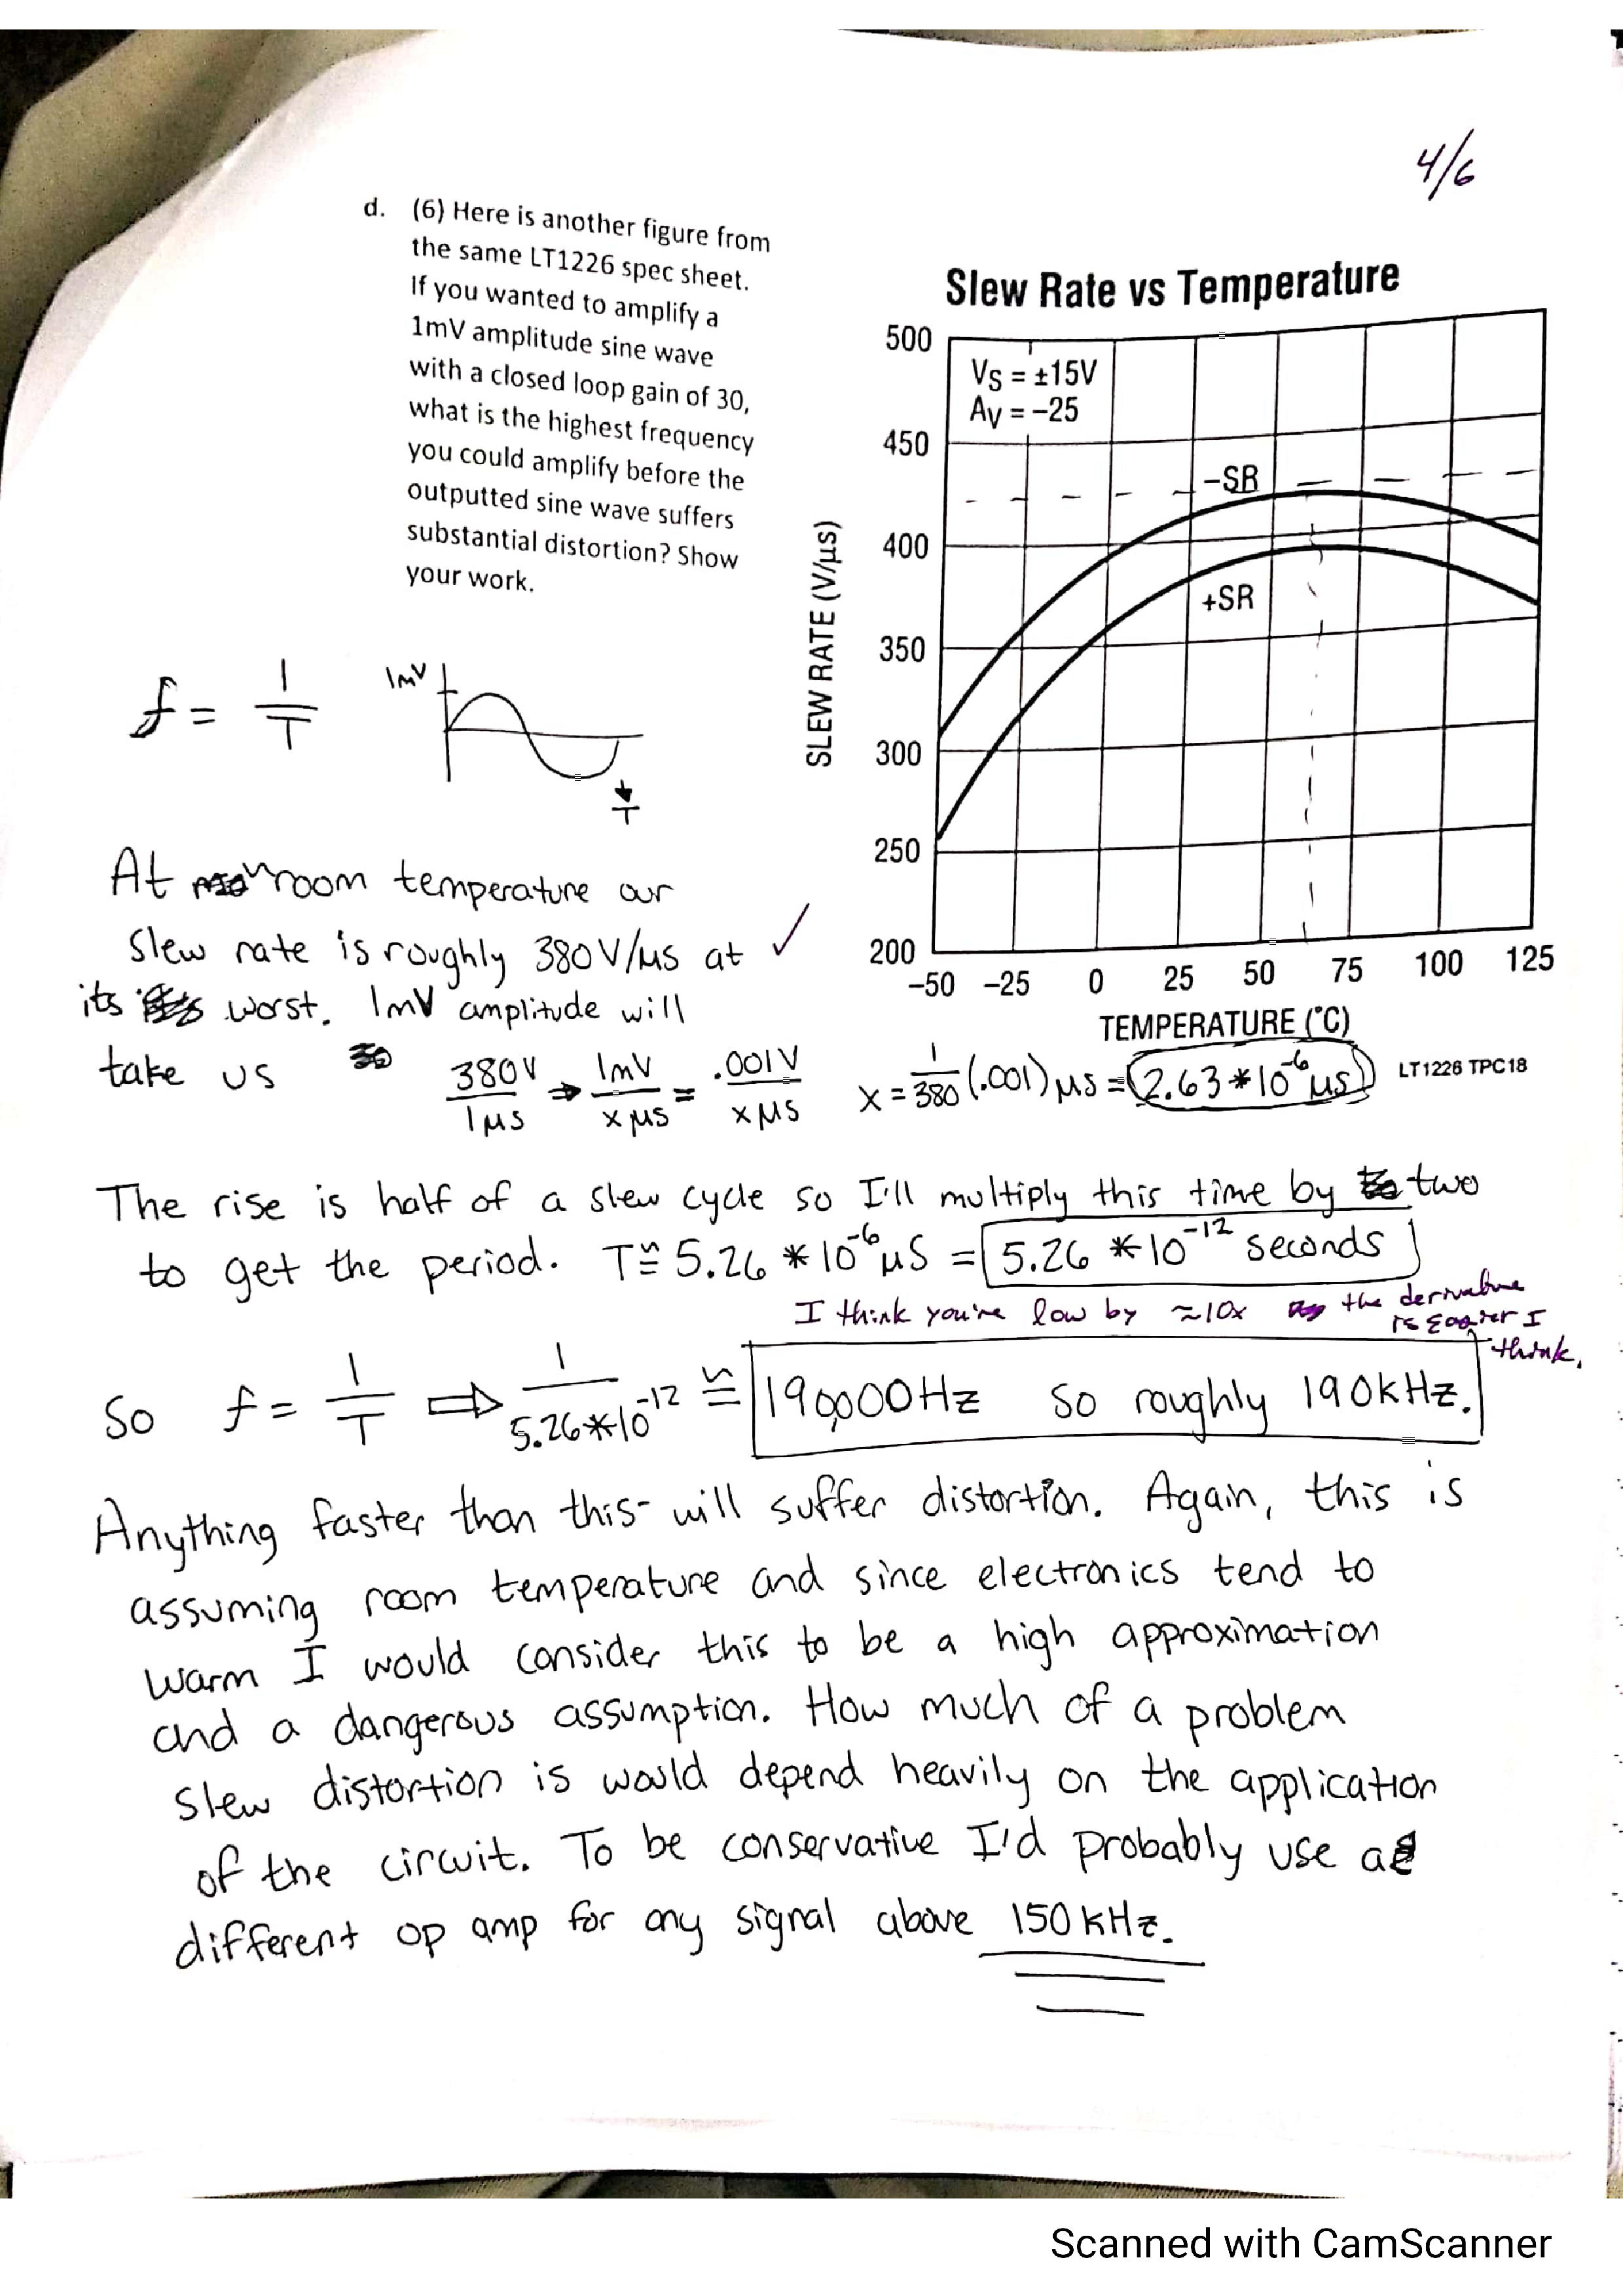 4/6
d. (6) Here is another figure from
the same LT1226 spec sheet.
If you wanted to amplify a
1mV amplitude sine wave
with a closed loop gain of 30,
what is the highest frequency
you could amplify before the
outputted sine wave suffers
substantial distortion? Show
your work.
Slew Rate vs Temperature
500
450
400
350
300
250
200
VS = ±15V
AV = −25
−SR
+SR
SLEW RATE (V/µs)
−50 −25 0 25 50 75 100 125
TEMPERATURE (°C)
LT1226 TPC18
f = 1/T
1mV
T
At room temperature our
slew rate is roughly 380V/µs at ✓
its worst. 1mV amplitude will
take us 380V/1µs ⇒ 1mV/xµs = .001V/xµs x = 1/380 (.001) µs = (2.63*10^-6 µs)
The rise is half of a slew cycle so I'll multiply this time by two
to get the period. T ≅ 5.26 * 10^-6 µs = 5.26 * 10^-12 seconds
I think you're low by ≈10x the derivative
is easier I
think.
So f = 1/T ⇒ 1/5.26*10^-12 ≅ 190,000Hz so roughly 190kHz.
Anything faster than this will suffer distortion. Again, this is
assuming room temperature and since electronics tend to
warm I would consider this to be a high approximation
and a dangerous assumption. How much of a problem
slew distortion is would depend heavily on the application
of the circuit. To be conservative I'd probably use a
different op amp for any signal above 150kHz.
Scanned with CamScanner